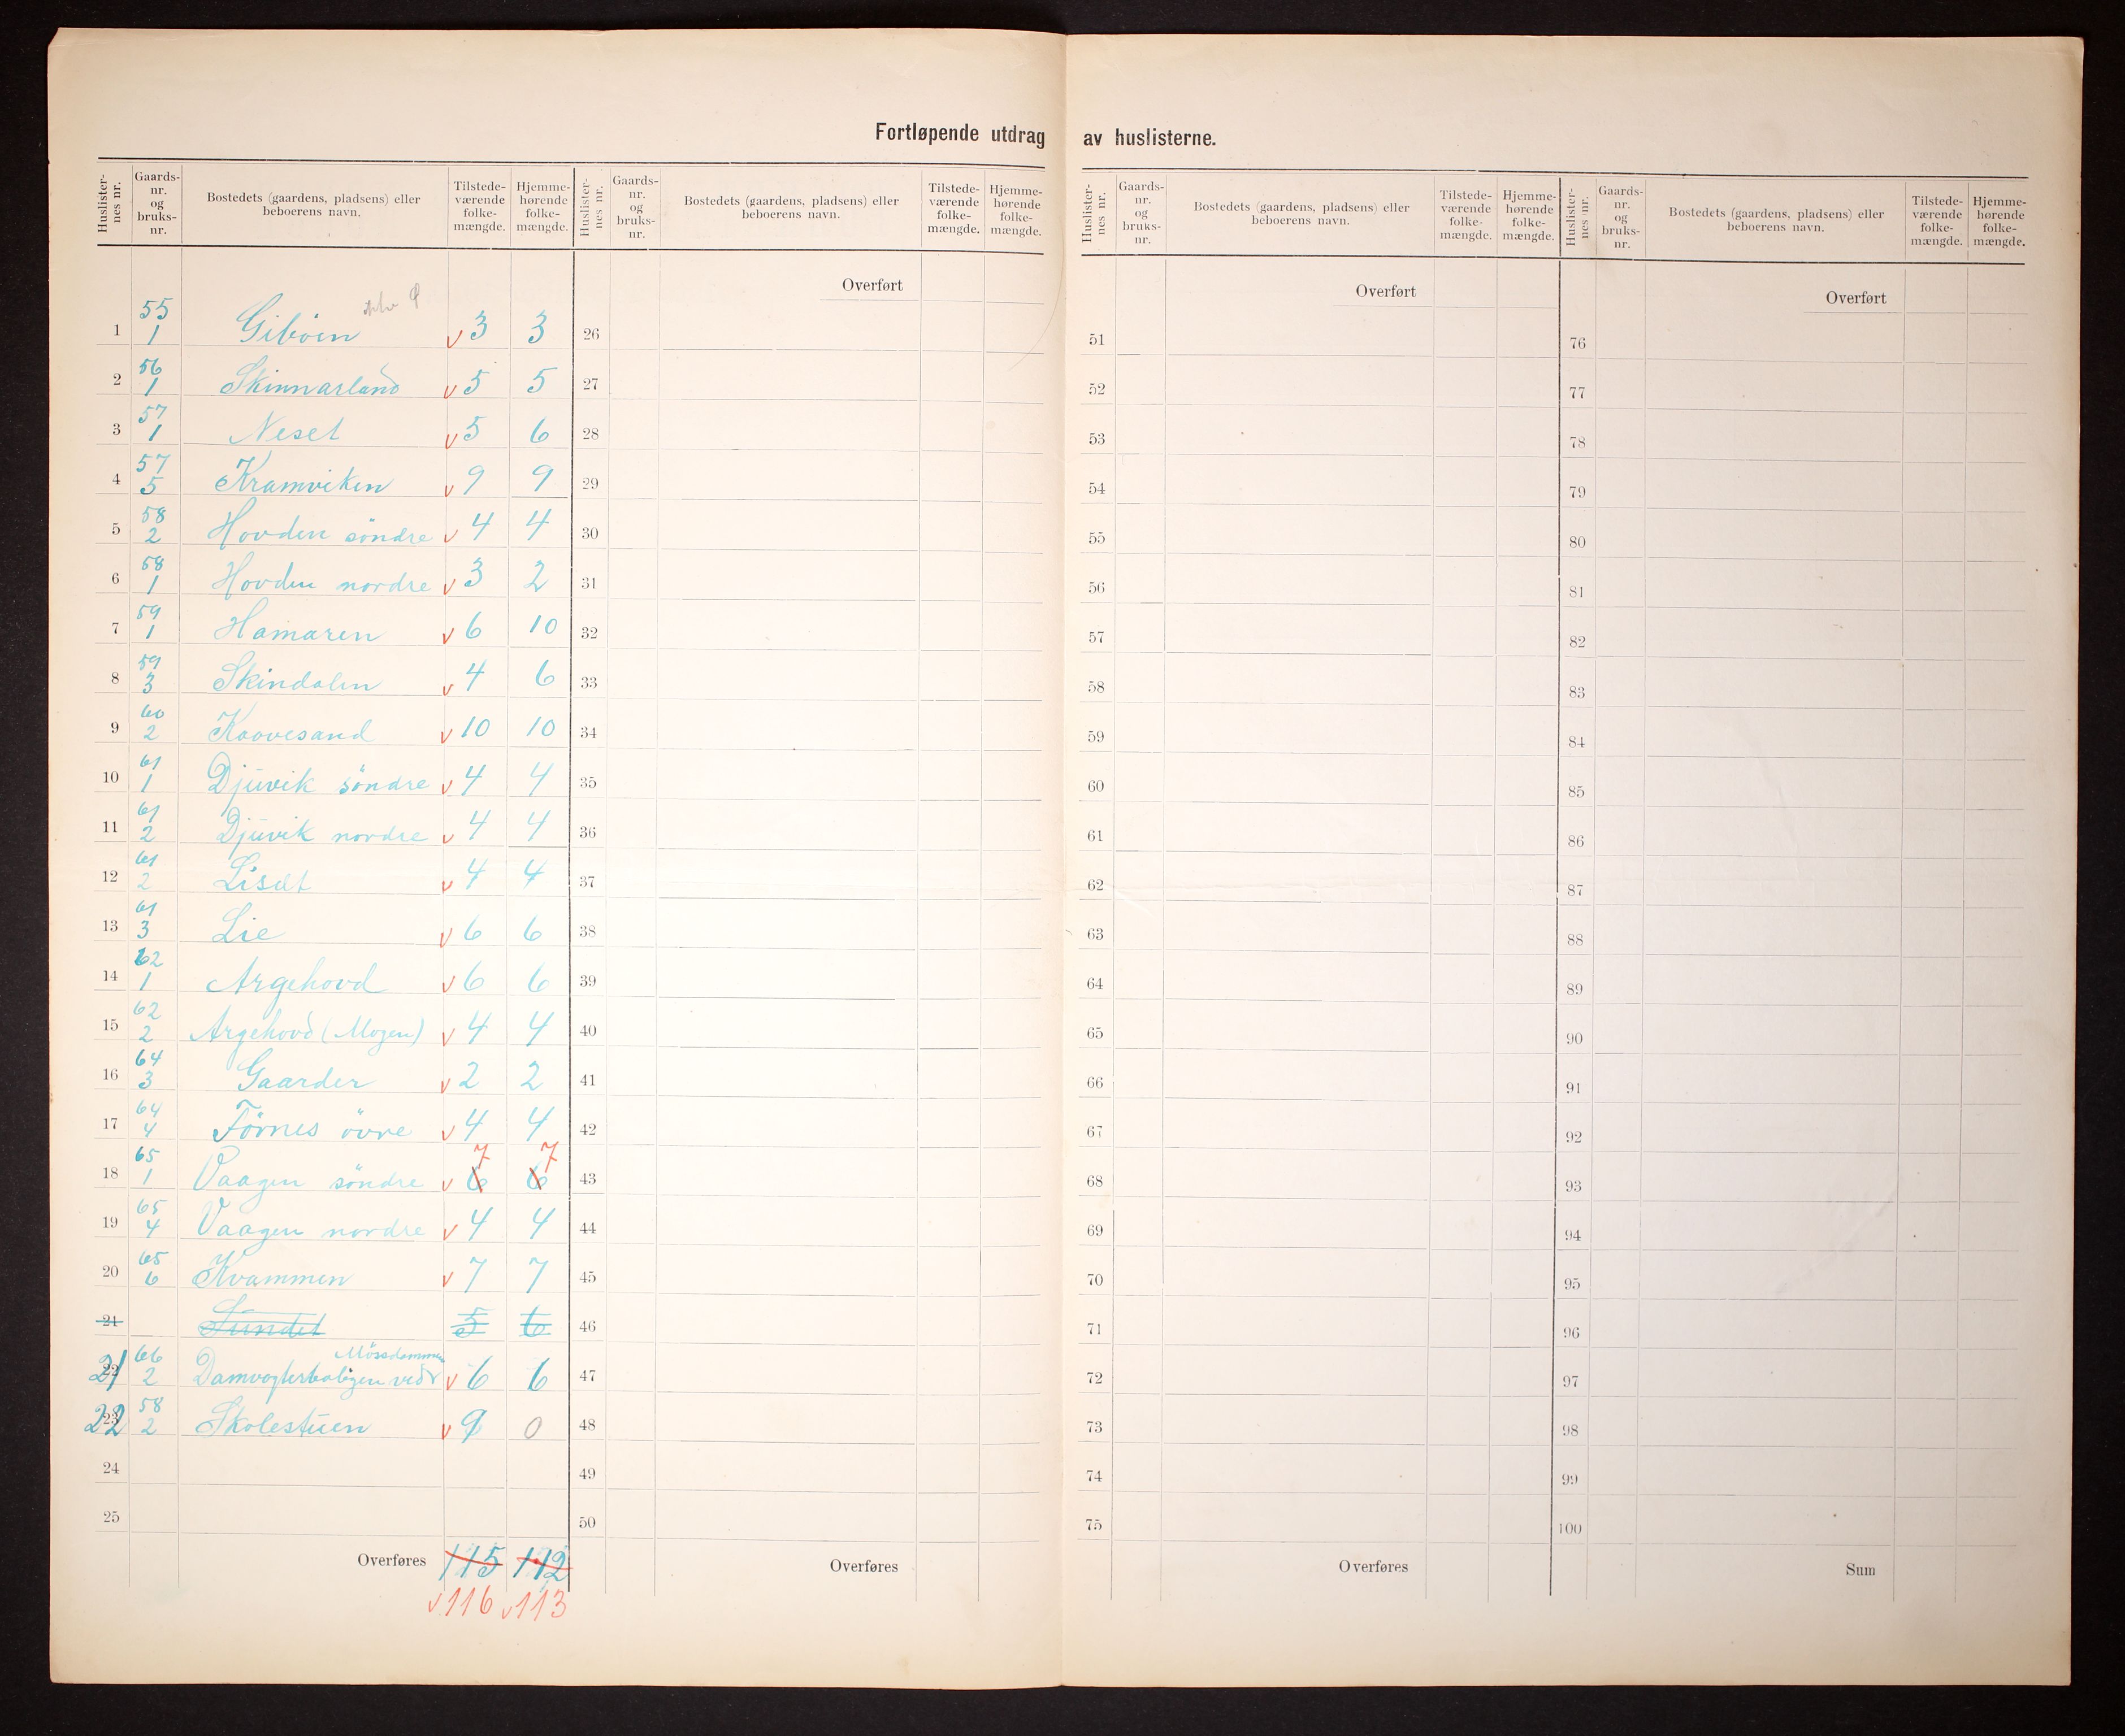 Fortløpende utdrag av huslisterne.
Huslister-nes nr. Gaards-nr. og bruks-nr. Bostedets (gaardens, pladsens) eller beboerens navn. Tilstede-værende folke-mængde. Hjemme-hørende folke-mængde. Huslister-nes nr. Gaards-nr. og bruks-nr. Bostedets (gaardens, pladsens) eller beboerens navn. Tilstede-værende folke-mængde. Hjemme-hørende folke-mængde. Huslister-nes nr. Gaards-nr. og bruks-nr. Bostedets (gaardens, pladsens) eller beboerens navn. Tilstede-værende folke-mængde. Hjemme-hørende folke-mængde. Huslister-nes nr. Gaards-nr. og bruks-nr. Bostedets (gaardens, pladsens) eller beboerens navn. Tilstede-værende folke-mængde. Hjemme-hørende folke-mængde.
Overført Overført Overført
1 55 1 Gibøen v 3 3 26 51 76
2 56 1 Skinnarland v 5 5 27 52 77
3 57 1 Neset v 5 6 28 53 78
4 57 5 Kramviken v 9 9 29 54 79
5 58 2 Hovden söndre v 4 4 30 55 80
6 58 1 Hovden nordre v 3 2 31 56 81
7 59 1 Hamaren v 6 10 32 57 82
8 59 3 Skindalen v 4 6 33 58 83
9 60 2 Kaavesand v 10 10 34 59 84
10 61 1 Djuvik söndre v 4 4 35 60 85
11 61 2 Djuvik nordre v 4 4 36 61 86
12 61 2 Lisæt v 4 4 37 62 87
13 61 3 Lie v 6 6 38 63 88
14 62 1 Argehovd v 6 6 39 64 89
15 62 2 Argehovd (Mogen) v 4 4 40 65 90
16 64 3 Gaarder v 2 2 41 66 91
17 64 4 Förnes övre v 4 4 42 67 92
7 7
18 65 1 Vaagen söndre v 6 6 43 68 93
19 65 4 Vaagen nordre v 4 4 44 69 94
20 65 6 Kvammen v 7 7 45 70 95
21 Sundet 5 6 46 71 96
Mössdammen
22 21 66 2 Damvogterboligen ved v 6 6 47 72 97
23 22 58 2 Skolestuen v 9 0 48 73 98
24 49 74 99
25 50 75 100
Overføres 115 112 Overføres Overføres Sum
v 116 v 113